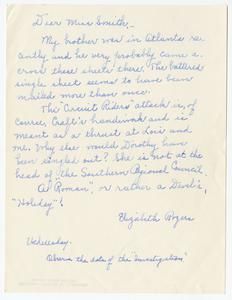 Dear Miss Smith:-
My brother was in Atlanta rec-
ently and he very probably came a-
cross these sheets there. The battered
single sheet seems to have been
mailed more than once.
The "Circuit Riders" attack is, of
course, Craft's handiwork and is
meant as a thrust at and
me. Why else would Dorothy have
been singled out? She is not at the
head of "the Southern Regional Council.
A "Roman", or rather a Devil's,
"Holiday"!
Elizabeth Rogers
Wednesday.
Observe the date of the "investigation"